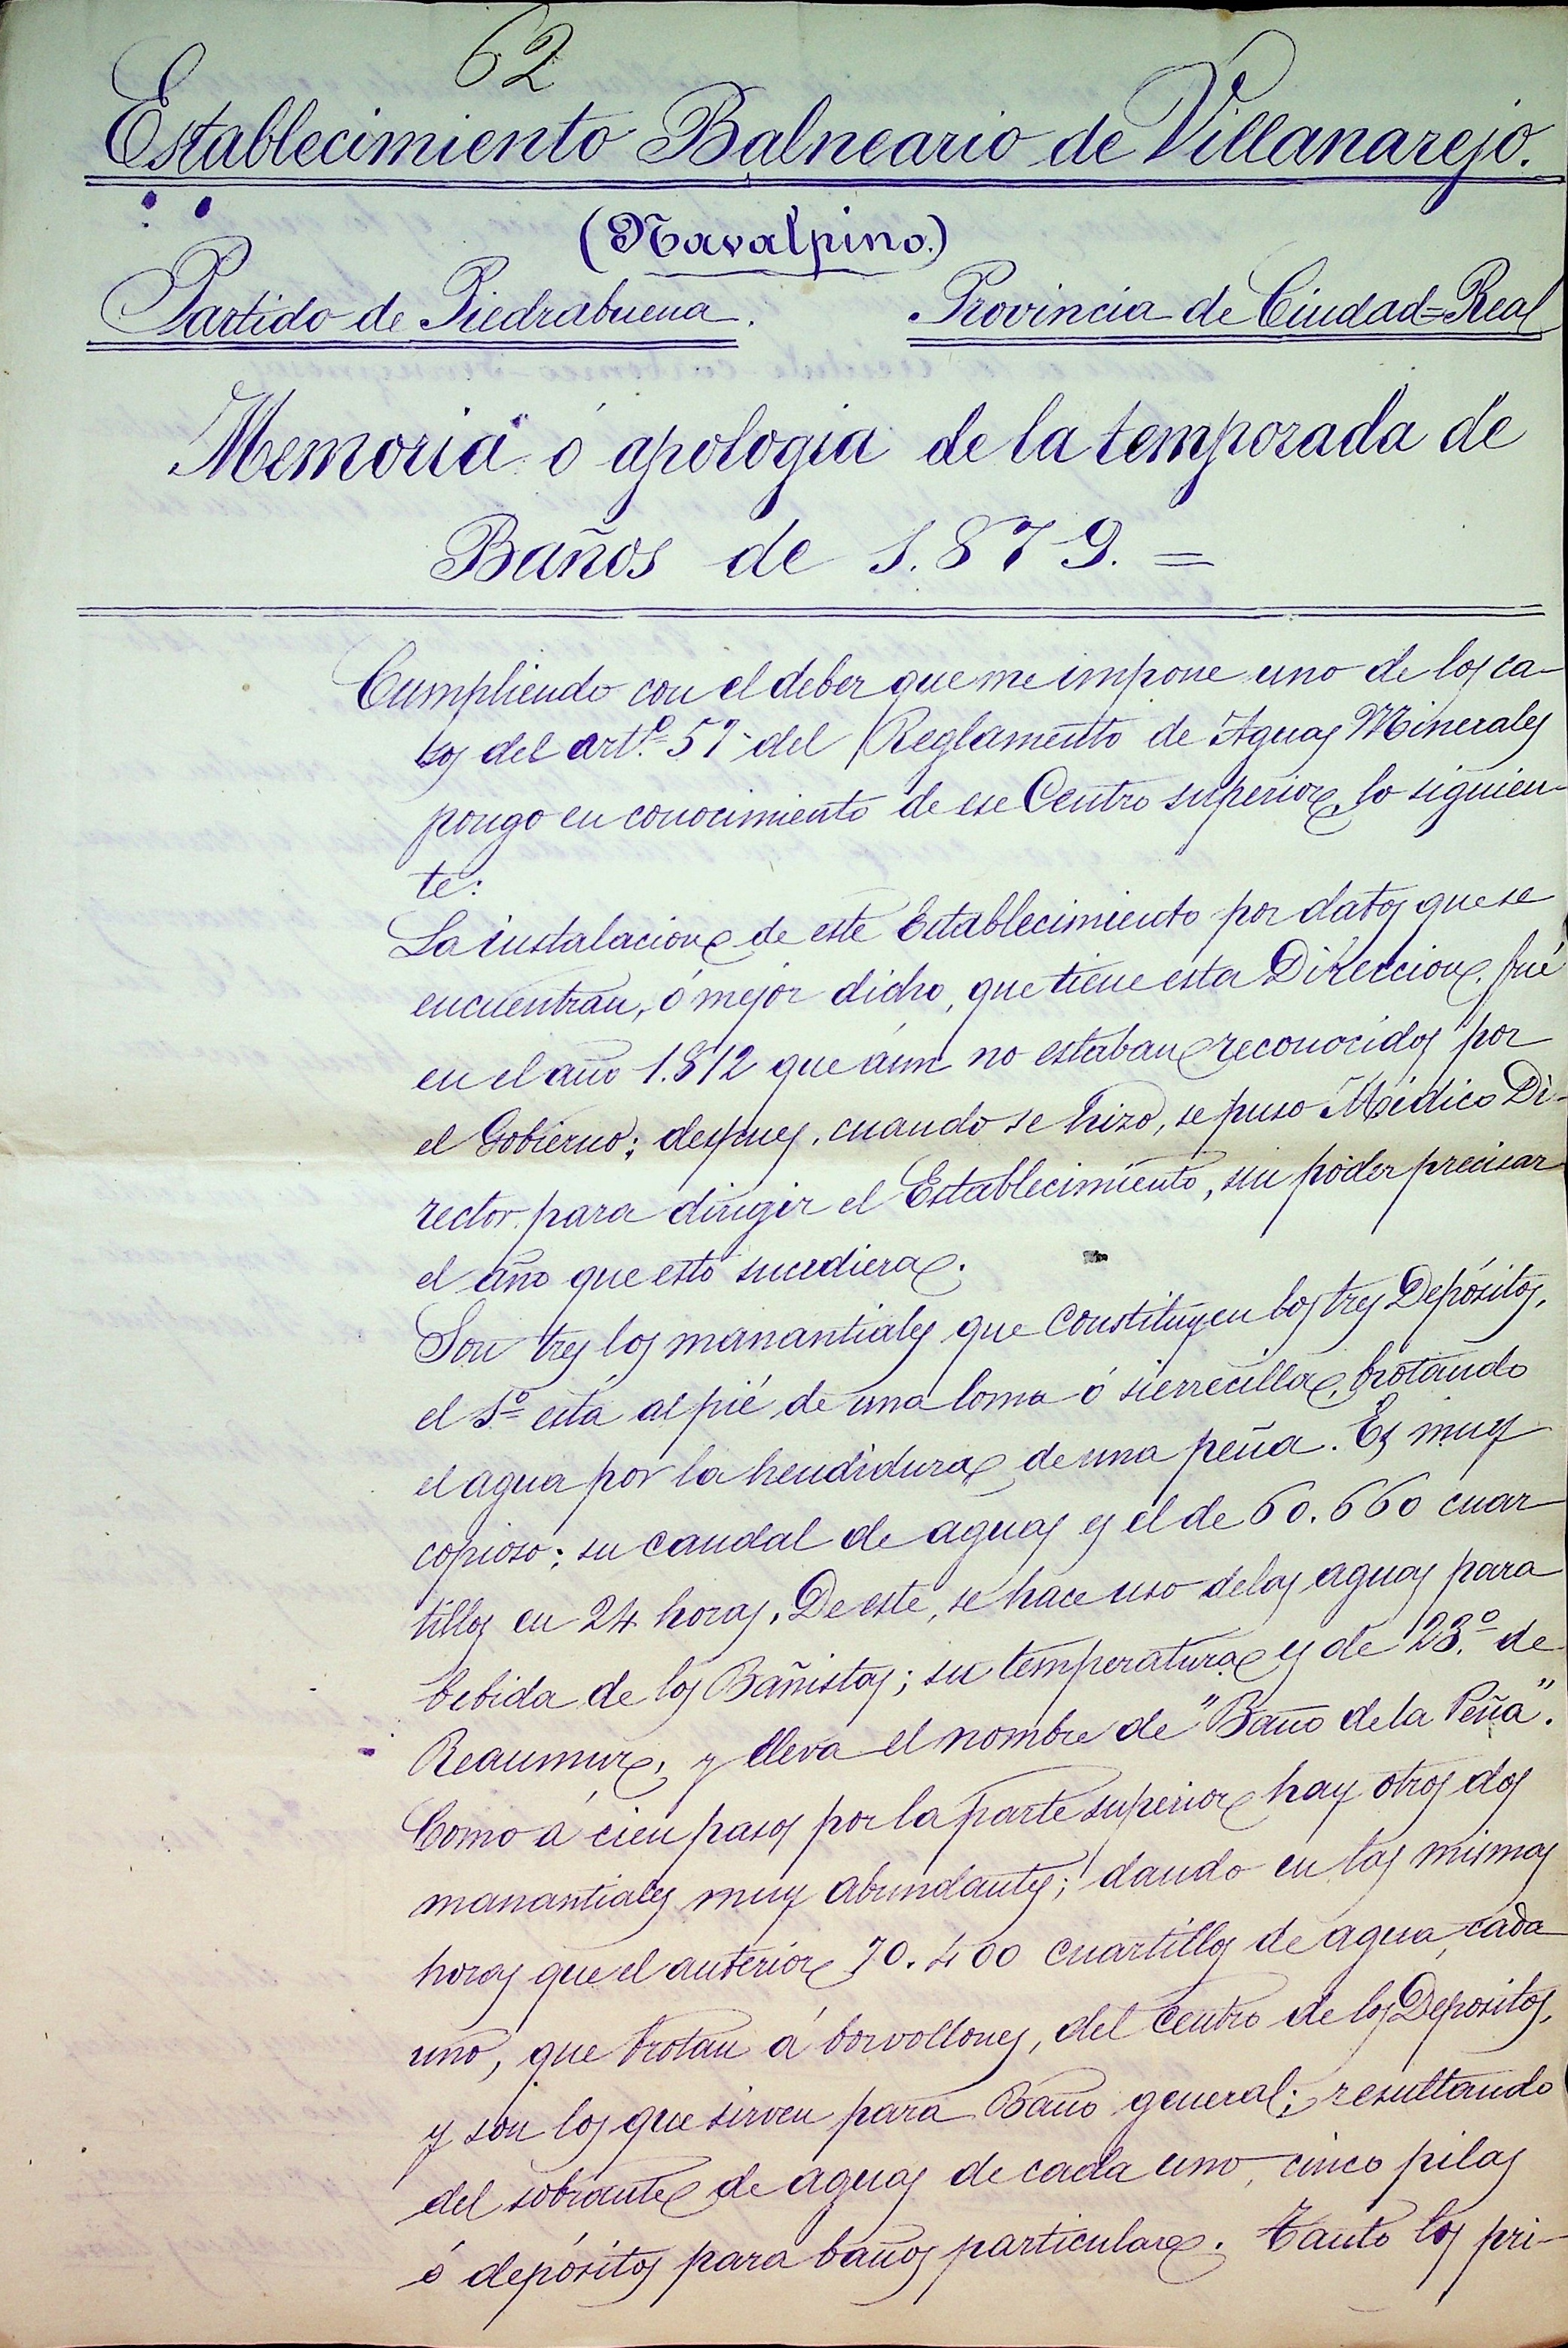 62
Establecimiento Balneario de Villanarejo.
(Navalpino.)
Partido de Piedrabuena. Provincia de Ciudad=Real
Memoria ó apologia de la temporada de
Baños de 1.879. =
Cumpliendo con el deber que me impone uno de los ca-
sos del artº. 57 del Reglamento de Aguas Minerales
pongo en conocimiento de ese Centro superior lo siguien-
te:
La instalacion de este Establecimiento por datos que se
encuentran, ó mejor dicho, que tiene esta Direccion, fué
en el año 1.812 que aún no estaban reconocidos por
el Gobierno; despues, cuando se hizo, se puso Médico Di-
rector para dirigir el Establecimiento, sin poder precisar
el año que esto sucediera.
Son tres los manantiales que constituyen los tres Depósitos,
el 1º está al pié de una loma ó sierrecilla, brotando
el agua por la hendidura de una peña. Es muy
copioso; su caudal de aguas es el de 60.660 cuar
tillos en 24 horas. De este, se hace uso de las aguas para
bebida de los Bañistas; su temperatura es de 23.º de
Reaumur, y lleva el nombre de "Baño de la Peña".
Como á cien pasos por la parte superior hay otros dos
manantiales muy abundantes; dando en las mismas
horas que el anterior 70.400 cuartillos de agua, cada
uno, que brotan á borvollones, del centro de los Depositos,
y son los que sirven para Baño general; resultando
del sobrante de aguas de cada uno, cinco pilas
ó depósitos para baños particulares. Tanto los pri-